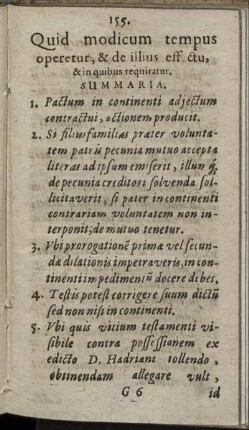 155.
Quid modicum tempus
operetur, & de illius eff. ctu,
& in quibus requiratur.
SUMMARIA.
1. Pactum in continenti adjectum
contractui, actionem producit.
2. Si filiusfamilias præter volunta-
tem patris pecunia mutuo accepta
literas ad ipsum emiserit, illum q̃
de pecunia creditori solvenda sol-
licitaverit, si pater in continenti
contrariam voluntatem non in-
terponit, de mutuo tenetur.
3. Vbi prorogationẽ primæ vel secun-
dæ dilationis impetraveris, in con-
tinenti impedimentũ docere debes.
4. Testis potest corrigere suum dictũ
sed non nisi in continenti.
5. Vbi quis vitium testamenti vi-
sibile contra possessionem ex
edicto D. Hadriani tollendo,
obtinendam allegare vult,
G 6 id